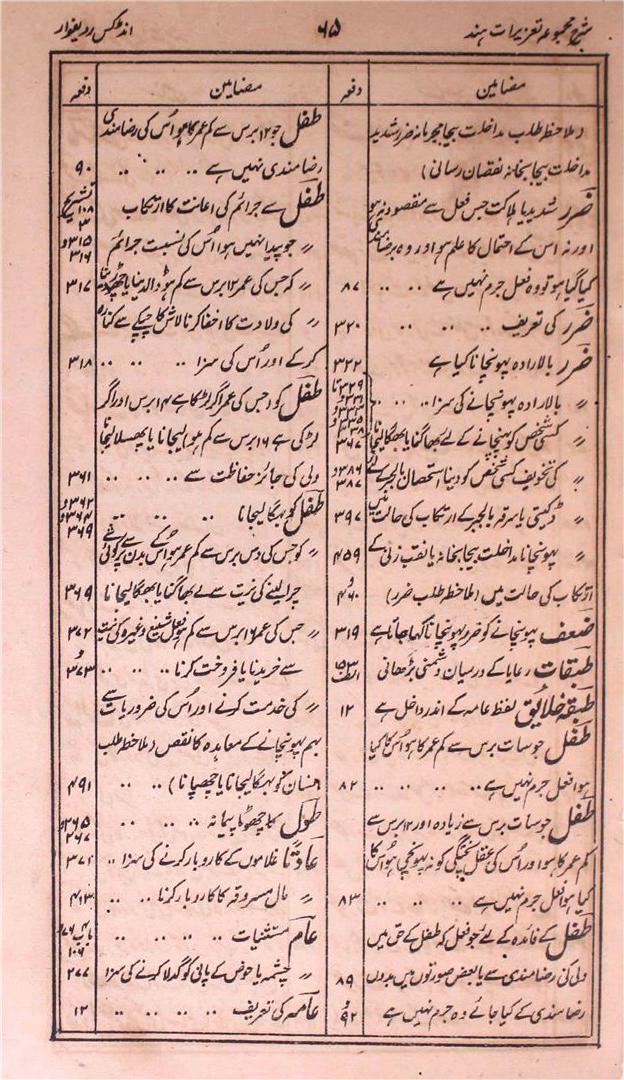 شرح مجموعہ تعزیرات ہند ۶۵ انڈکس ردیفوار
مضامین دفعہ
(ملاحظہ طلب مداخلت بیجا مجرمانہ ضرر شدید
مداخلت بیجا بخانہ نقصان رسانی)
ضرر شدید یا ہلاکت جس فعل سے مقصود نہ ہو
اور نہ اس کے احتمال کا علم ہو اور وہ برضامندی
کیا گیا ہو تو وہ فعل جرم نہیں ہے .. .. ۸۷
ضرر کی تعریف .. .. .. .. ۳۲۰
ضرر بالارادہ پہونچانا کیا ہے ۳۲۲
〃 بالارادہ پہونچانے کی سزا .. .. ..
〃 کسی شخص کو پہنچانے کے لئے بھاگنا یا بھگا لیجانا ۳۶۷
〃 کی تخویف کسی شخص کو دینا استحصال بالجبر کے لئے ۳۸۶ و ۳۸۷
〃 ڈکیتی یا سرقہ بالجبر کے ارتکاب کی حالت میں ۳۹۷
〃 پہونچانا مداخلت بیجا بخانہ یا نقب زنی کے ۴۵۹
ارتکاب کی حالت میں (ملاحظہ طلب ضرر) و ۴۶۰
ضعف پہونچانے کو ضرر پہونچانا کہا جاتا ہے ۳۱۹
طبقات رعایا کے درمیان دشمنی بڑھانی ۱۵۳ الف
طبقہ خلایق لفظ عامہ کے اندر داخل ہے ۱۲
طفل جو سات برس سے کم عمر کا ہو اُس کا کیا
ہوا فعل جرم نہیں ہے .. .. .. .. ۸۲
طفل جو سات برس سے زیادہ اور ۱۲ برس سے
کم عمر کا ہو اور اُس کی عقل پختگی کو نہ پہونچی ہو اُس کا
کیا ہوا فعل جرم نہیں ہے .. .. .. ۸۳
طفل کے فائدہ کے لئے جو فعل کہ طفل کے حق میں
ولی کی رضامندی سے یا بعض صورتوں میں بدوں ۸۹
رضامندی کے کیا جائے وہ جرم نہیں ہے و ۹۲
مضامین دفعہ
طفل جو ۱۲ برس سے کم عمر کا ہو اُس کی رضامندی
رضامندی نہیں ہے .. .. .. .. ۹۰
طفل سے جرائم کی اعانت کا ارتکاب ۱۰۸ تشریح ۳
〃 جو پیدا نہیں ہوا اُس کی نسبت جرائم ۳۱۵ و ۳۱۶
〃 کہ جس کی عمر ۱۲ برس سے کم ہو ڈالدینا یا چھوڑ دینا ۳۱۷
〃 کی ولادت کا اخفا کرنا لاش کا چپکے سے کنارہ
کرکے اور اُس کی سزا .. .. .. ۳۱۸
طفل کو (جس کی عمر اگر لڑکا ہے ۱۴ برس اور اگر
لڑکی ہے ۱۶ برس سے کم ہو لیجانا یا پھسلا لیجانا
ولی کی جائز حفاظت سے .. .. .. ۳۶۱
طفل کو بہگا لیجانا .. .. .. .. ۳۶۳ و ۳۶۴ و ۳۶۹
〃 کو جس کی دس برس سے کم عمر ہو اُس کے بدن پر سے کوئی شے
چرا لینے کی نیت سے لے بھاگنا یا بھگا لیجانا ۳۶۹
〃 جس کی عمر ۱۶ برس سے کم ہو فعل شنیع وغیرہ کی نیت ۳۷۲
سے خریدنا یا فروخت کرنا .. .. .. و ۳۷۳
〃 کی خدمت کرنے اور اُس کی ضروریات کے
بہم پہونچانے کے معاہدہ کا نقص (ملاحظہ طلب
انسان کو بہگا لیجانا یا چھپانا) .. .. ۴۹۱
طول کا جھوٹا پیمانہ .. .. .. .. ۲۶۵ و ۲۶۷
عادتًا غلاموں کے کاروبار کرنے کی سزا .. ۳۷۱
〃 مال مسروقہ کا کاروبار کرنا .. .. ۴۱۳
عام مستثنیات .. .. .. .. باب ۴ ۷۶ و ۱۰۶
〃 چشمہ یا حوض کے پانی کو گدلا کرنے کی سزا ۲۷۷
عامہ کی تعریف .. .. .. .. ۱۲